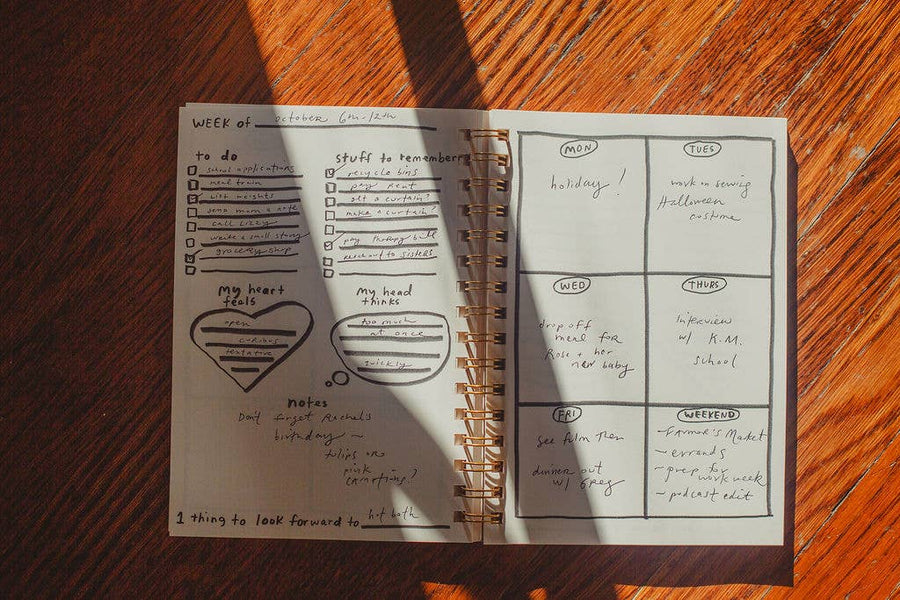 WEEK OF october 6th-12th
to do
school applications
meal train
lift weights
send mom a note
call Lizzy
write a small story
grocery shop
stuff to remember
recycle bins
pay rent
get a curtain?
make a curtain?
pay therapy bill
reach out to sisters
my heart
feels
open
curious
tentative
my head
thinks
too much
at once
quickly
notes
Don't forget Rachel's
birthday ~
tulips or
pink
carnations?
1 thing to look forward to hot bath
MON
holiday!
TUES
work on sewing
Halloween
costume
WED
drop off
meal for
Rose + her
new baby
THURS
interview
w/ K.M.
school
FRI
see film then
dinner out
w/ Greg
WEEKEND
~ FARMOR'S MARKET
~ errands
~ prep for
work week
~ podcast edit